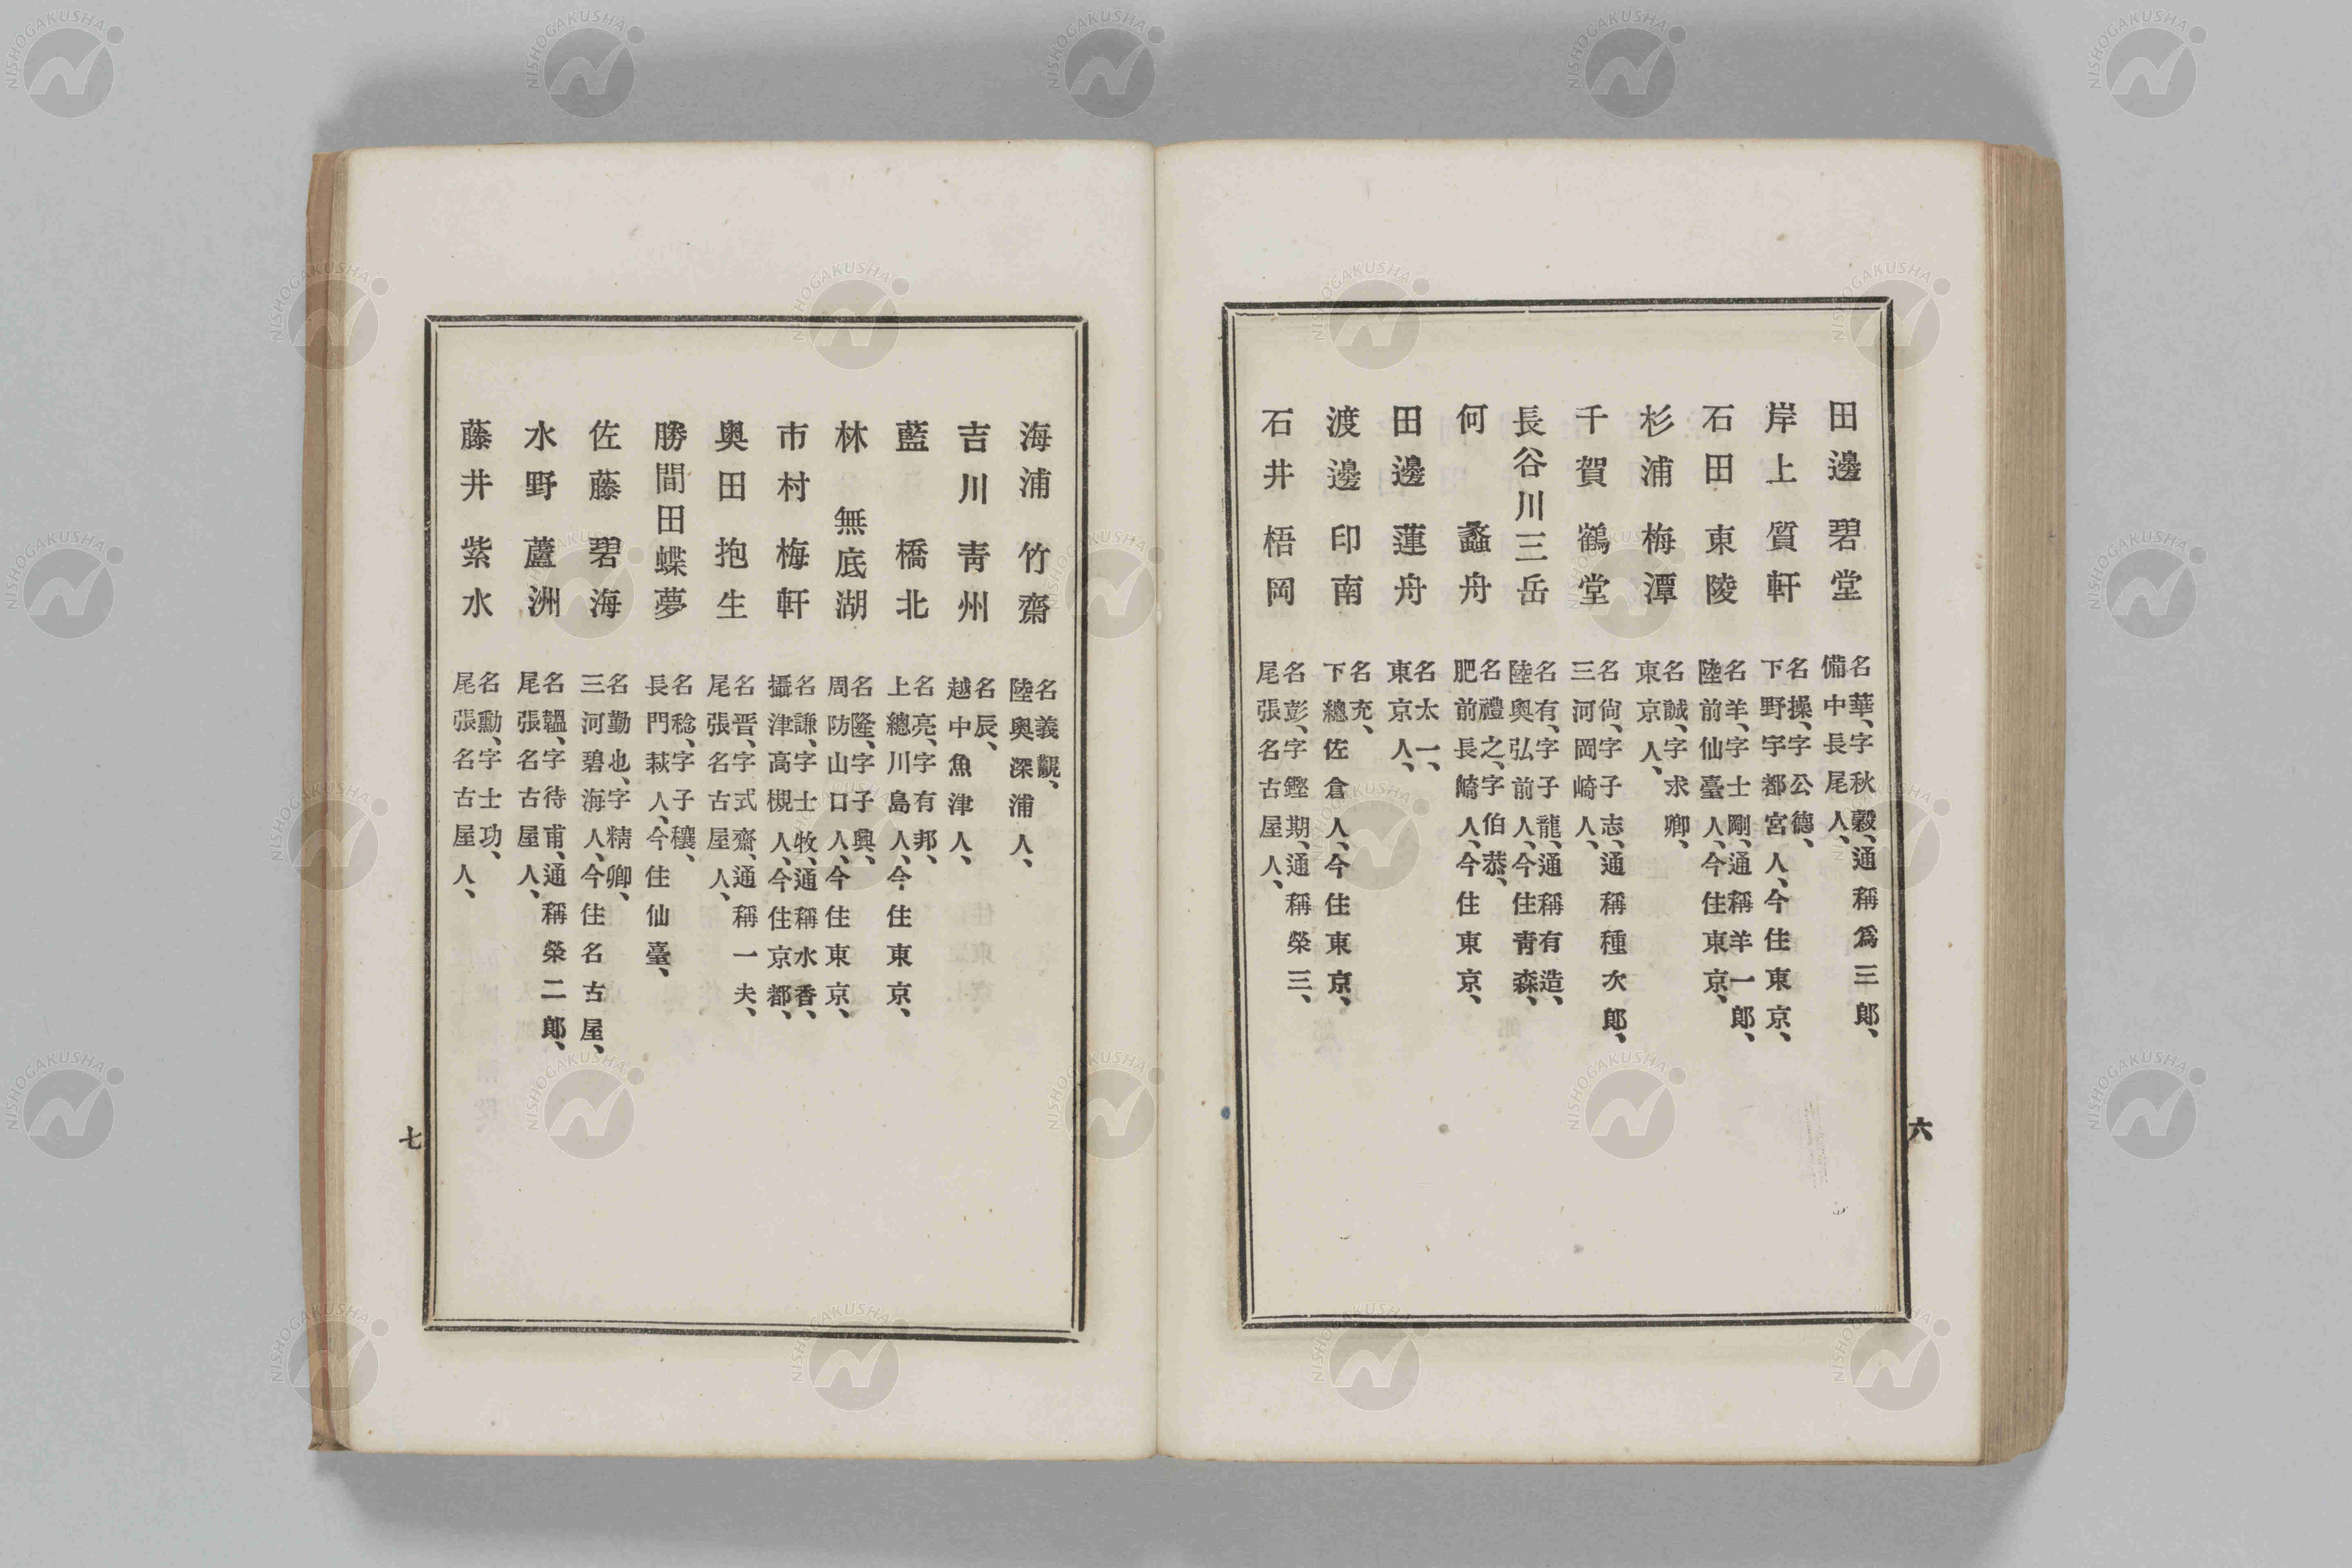 田邊碧堂
名華、字秋穀、通稱爲三郎、
備中長尾人、
岸上質軒
名操、字公德、
下野宇都宮人、今住東京、
石田東陵
名羊、字士剛、通稱羊一郎、
陸前仙臺人、今住東京、
杉浦梅潭
名誠、字求卿、
東京人、
千賀鶴堂
名尙、字子志、通稱種次郎、
三河岡崎人、
長谷川三岳
名有、字子龍、通稱有造、
陸奧弘前人、今住靑森、
何蠡舟
名禮之、字伯恭、
肥前長崎人、今住東京、
田邊蓮舟
名太一、
東京人、
渡邊印南
名充、
下總佐倉人、今住東京、
石井梧岡
名彭、字鏗期、通稱榮三、
尾張名古屋人、
六
海浦竹齋
名義觀、
陸奧深浦人、
吉川靑州
名辰、
越中魚津人、
藍橋北
名亮、字有邦、
上總川島人、今住東京、
林無底湖
名隆、字子興、
周防山口人、今住東京、
市村梅軒
名謙、字士牧、通稱水香、
攝津高槻人、今住京都、
奧田抱生
名晋、字式齋、通稱一夫、
尾張名古屋人、
勝間田蝶夢
名稔、字子穰、
長門萩人、今住仙臺、
佐藤碧海
名勤也、字精卿、
三河碧海人、今住名古屋、
水野蘆洲
名韞、字待甫、通稱榮二郎、
尾張名古屋人、
藤井紫水
名勳、字士功、
尾張名古屋人、
七
NISHOGAKUSHA